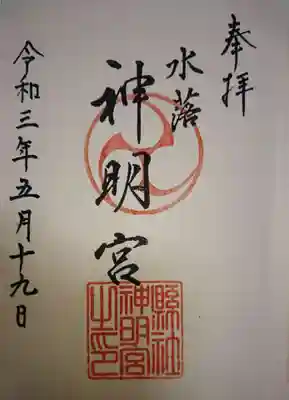 奉拝
水落
神明宮
縣社
神明宮
之印
令和三年五月十九日